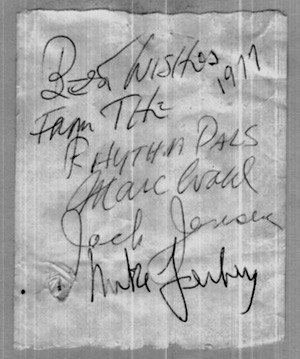 Best Wishes
1977
From The
Rhythm Pals
Marc Wald
Jack Jensen
Mike Ferbey